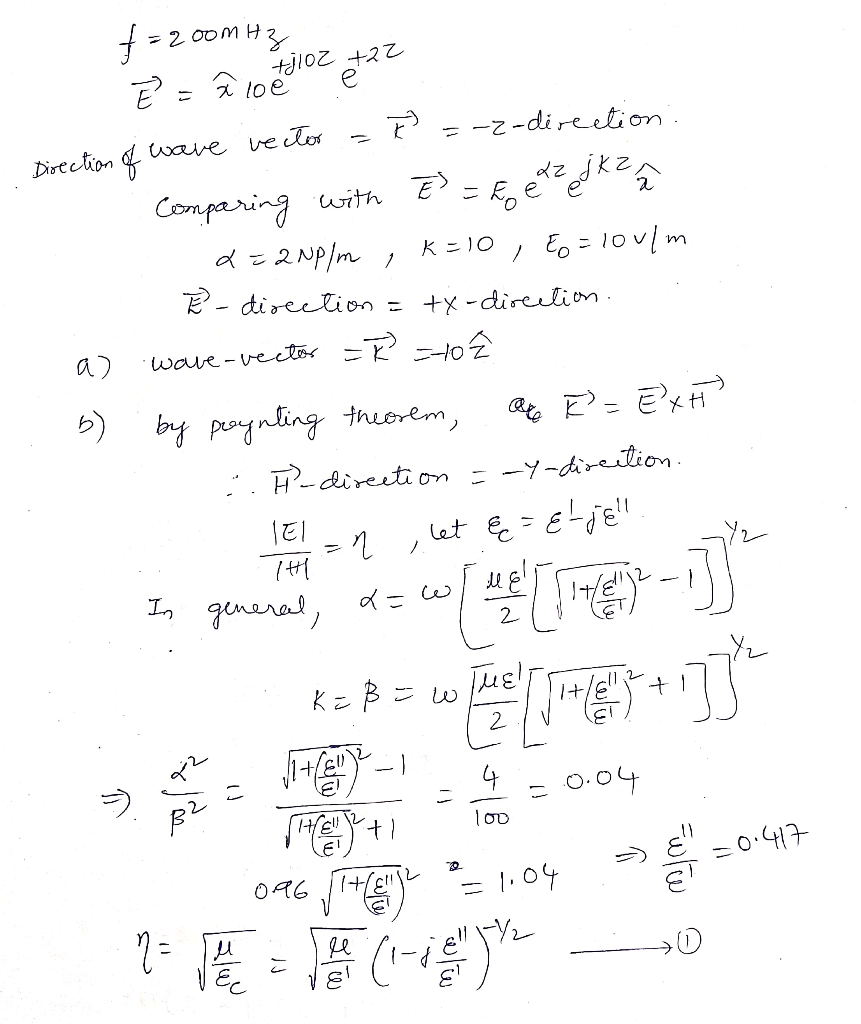 f = 200MHz
E⃗ = x̂ 10 e^{+j10z} e^{+2z}
Direction of wave vector = K⃗ = -z-direction.
Comparing with E⃗ = E₀ e^{αz} e^{jkz} x̂
α = 2 NP/m , K = 10 , E₀ = 10 V/m
E⃗ - direction = +x - direction.
a) wave-vector = K⃗ = -10 ẑ
b) by poynting theorem, K⃗ = E⃗ × H⃗
∴ H⃗ - direction = -Y-direction.
|E| / |H| = η , let ε_c = ε' - jε''
In general, α = ω [ με'/2 [ √(1+(ε''/ε')²) - 1 ] ]^{1/2}
K = β = ω [ με'/2 [ √(1+(ε''/ε')²) + 1 ] ]^{1/2}
⇒ α²/β² = (√(1+(ε''/ε')²) - 1) / (√(1+(ε''/ε')²) + 1) = 4/100 = 0.04
0.96 √(1+(ε''/ε')²) = 1.04 ⇒ ε''/ε' = 0.417
η = √(μ/ε_c) = √(μ/ε') (1 - j ε''/ε')^{-1/2} ⟶ ①